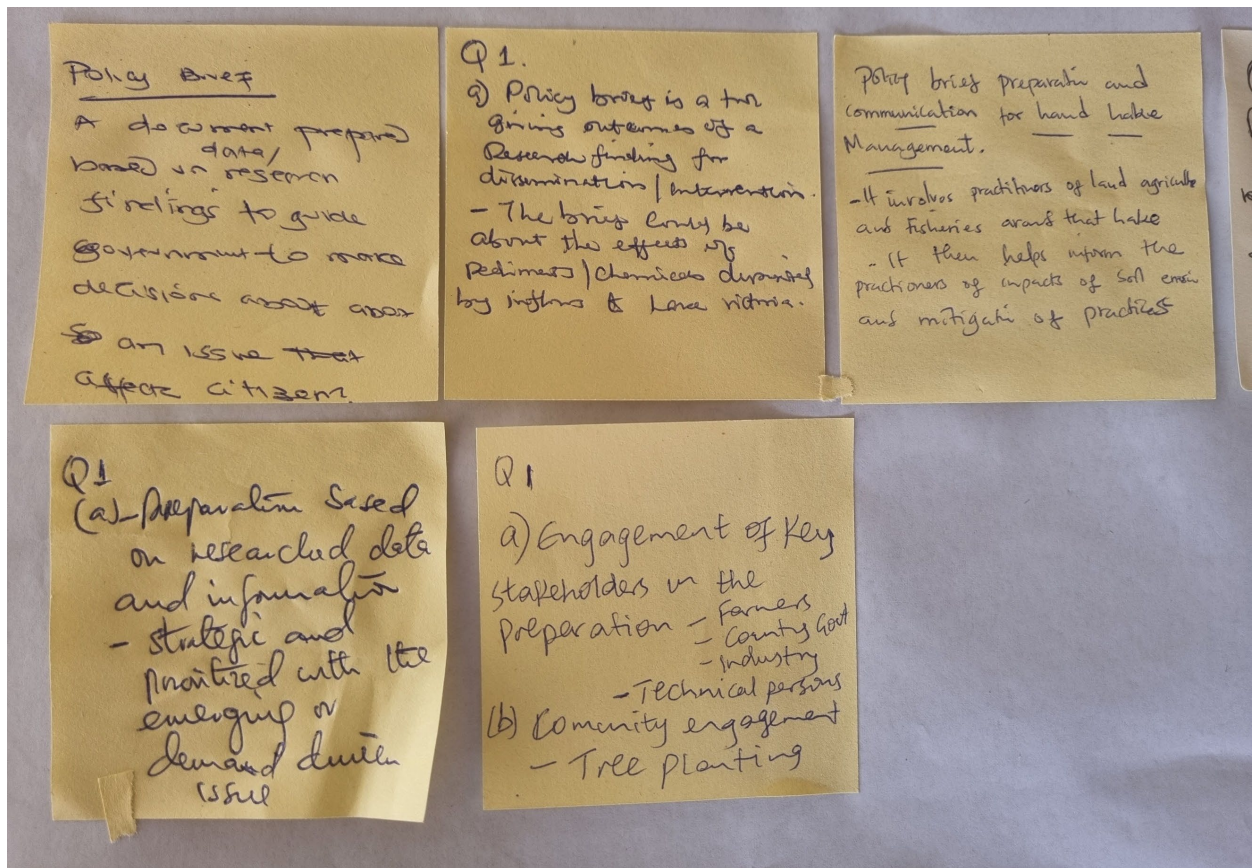 Policy Brief
A document prepared
data/
based on research
findings to guide
government to make
decisions about
an issue that
affects citizens.
Q1.
a) Policy brief is a tool
giving outcomes of a
Research finding for
dissemination / intervention.
- The brief could be
about the effects of
sediments / chemicals deposited
by inflows to Lake Victoria.
Policy brief preparatin and
communication for Land Lake
Management.
- It involves practitiners of land agriculture
and Fisheries around that Lake
- It then helps inform the
practioners of impacts of soil erosion
and mitigatin of practices
Q1
(a) - Preparation based
on researched data
and information
- strategic and
prioritized with the
emerging or
demand driven
issue
Q1
a) Engagement of Key
stakeholders in the
preparation - Farmers
- County Govt
- Industry
- Technical persons
(b) Comunity engagement
- Tree planting